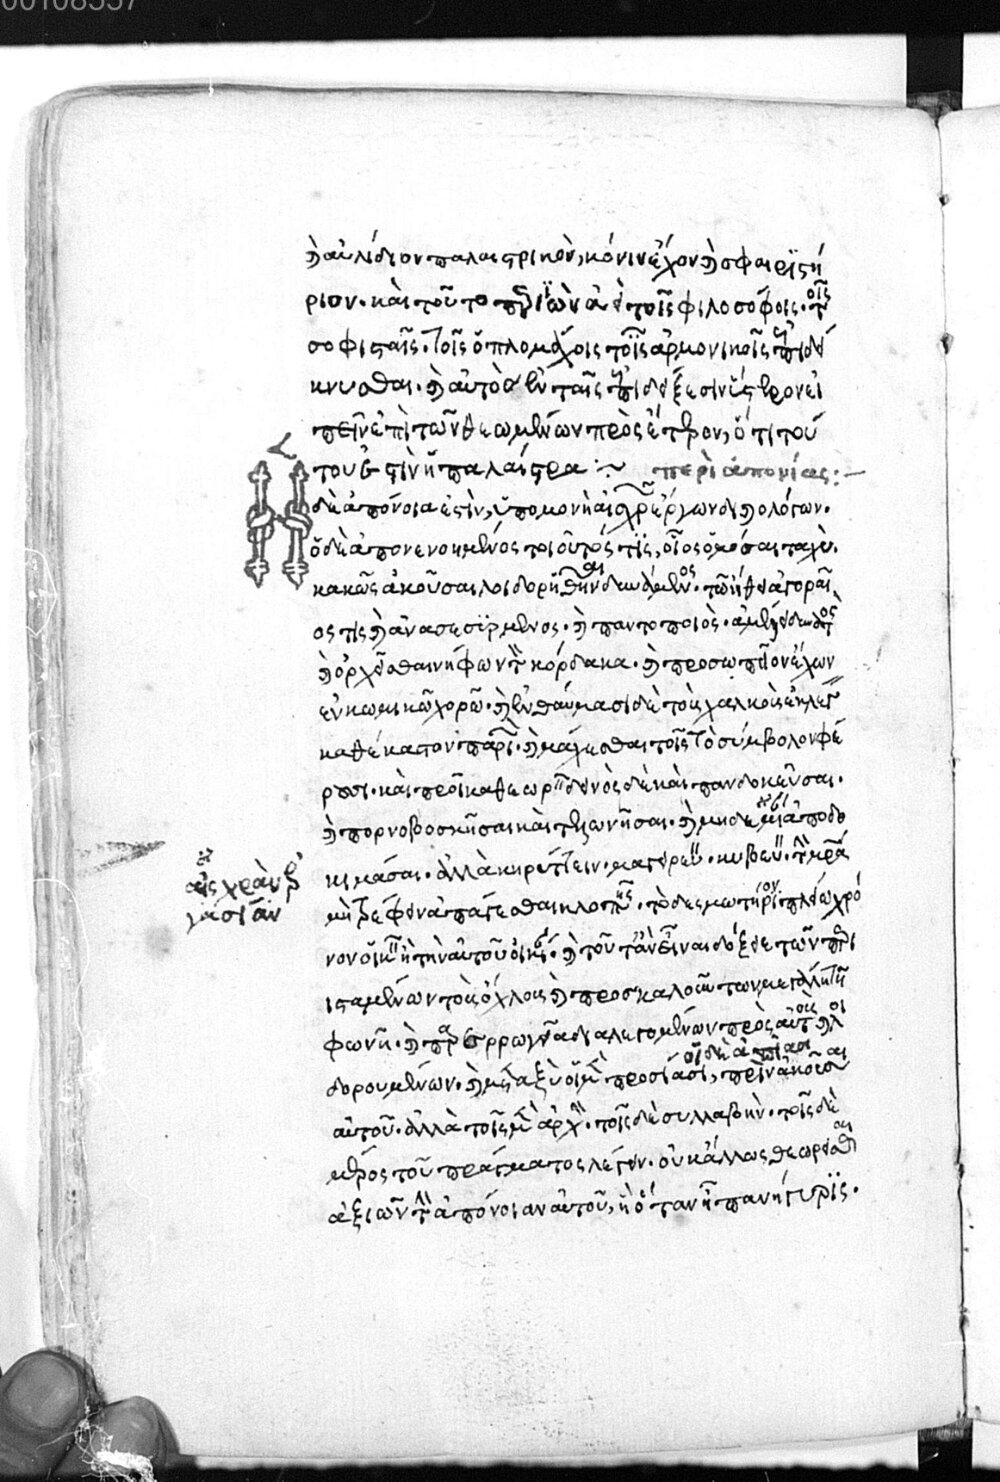 00108557
ἢ αὐλίδιον παλαιστρικὸν, κόνιν ἔχον ἢ σφαιριστή
ριον· καὶ τοῦτο περιϊὼν ἀεὶ τοῖς φιλοσόφοις· τοῖς
σοφισταῖς· τοῖς ὁπλομάχοις τοῖς ἁρμονικοῖς ἐπιδεί
κνυσθαι· ἢ αὐτὸς ἐν ταῖς ἐπιδείξεσιν ὕστερον εἰ
πεῖν ἐπὶ τῶν θεωμένων πρὸς ἕτερον, ὅτι τού
του ἐστὶν ἡ παλαίστρα :~ περὶ ἀπονίας :—
Ἡ δὲ ἀπόνοια ἐστὶν, ὑπομονὴ αἰσχρῶν ἔργων δὴ πολόγων·
ὁ δὲ ἀπονενοημένος τοιοῦτός τις, οἷος ὀμόσαι ταχὺ·
κακῶς ἀκοῦσαι λοιδορηθῆναι δυναμένος· τῷ ἤθει ἀγοραῖ
ος τὶς ἢ ἀνασεσυρμένος· ἢ παντοποιὸς· ἀμέλει δυνατὸς
ἢ ὀρχεῖσθαι νήφων τὴν κόρδακα· ἢ προσωπεῖον ἔχων
ἐν κωμικῷ χορῷ· ἢ ἐν θαύμασι δὲ τοὺς χαλκοὺς ἐκλέγειν
καθέκαστον παρϊὼν· ἢ μάχεσθαι τοῖς τὸ σύμβολον φέ
ρουσι· καὶ προῖκα θεωρεῖν δεινὸς δὲ καὶ πανδοκεῦσαι·
ἢ πορνοβοσκῆσαι καὶ τελωνῆσαι· ἢ μηδεμίαν αἰσχρὰν ἐργασίαν ἀποδο
κιμάσαι· ἀλλὰ κηρύττειν· μαγειρεύειν· κυβεύειν· τὴν μητέρα
μὴ τρέφειν ἀπάγεσθαι κλοπῆς· τὸ δεσμωτήριον πλείω χρό
νον οἰκεῖν ἢ τὴν αὐτοῦ οἰκίαν· ἢ τοῦτ ἂν εἶναι δόξειε τῶν περι
ισταμένων τοὺς ὄχλους ἢ προσκαλούντων μεγάλη τῇ
φωνῇ· ἢ παρερρωγυῖα διαλεγομένων πρὸς αὐτοὺς ἢ λοι
δορουμένων· ἢ μεταξὺ οἱ μὲν προσίασι, οἱ δὲ ἀπίασι πρὶν ἀκοῦσαι
αὐτοῦ· ἀλλὰ τοῖς μὲν ἀρχὴν· τοῖς δὲ συλλαβὴν· τοῖς δὲ
μέρος τοῦ πράγματος λέγειν· οὐκ ἄλλως θεωρεῖσθαι
ἀξιῶν τὴν ἀπόνοιαν αὐτοῦ, ἢ ὅταν ᾖ πανήγυρϊς·
αἰσχρὰν ἐρ
γασίαν